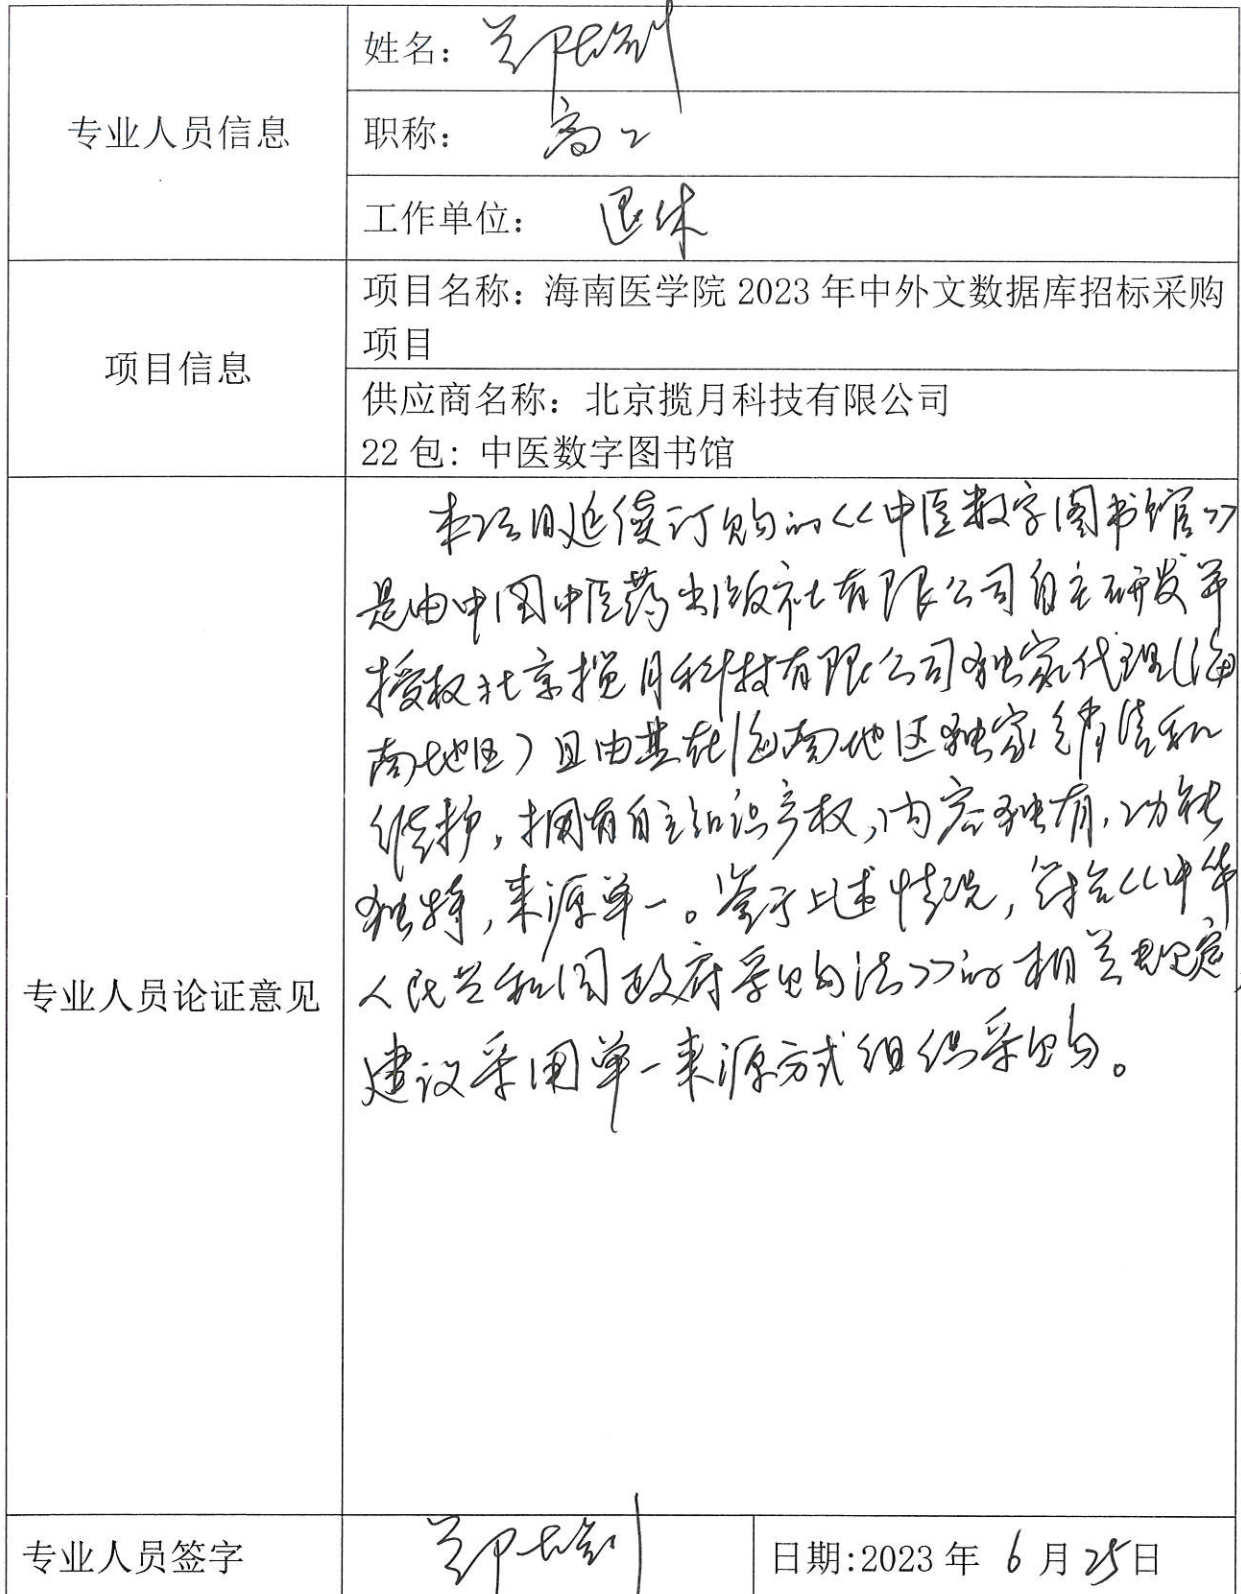 专业人员信息
姓名：郑
职称：高工
工作单位：退休
项目信息
项目名称：海南医学院 2023 年中外文数据库招标采购
项目
供应商名称：北京揽月科技有限公司
22 包：中医数字图书馆
专业人员论证意见
本项目延续订购的<<中医数字图书馆>>
是由中国中医药出版社有限公司自主研发并
授权北京揽月科技有限公司独家代理(海
南地区)且由其在海南地区独家销售和
维护,拥有自主知识产权,内容独有,功能
独特,来源单一。鉴于上述情况,符合<<中华
人民共和国政府采购法>>的相关规定,
建议采用单一来源方式组织采购。
专业人员签字
郑
日期:2023 年 6 月 25 日